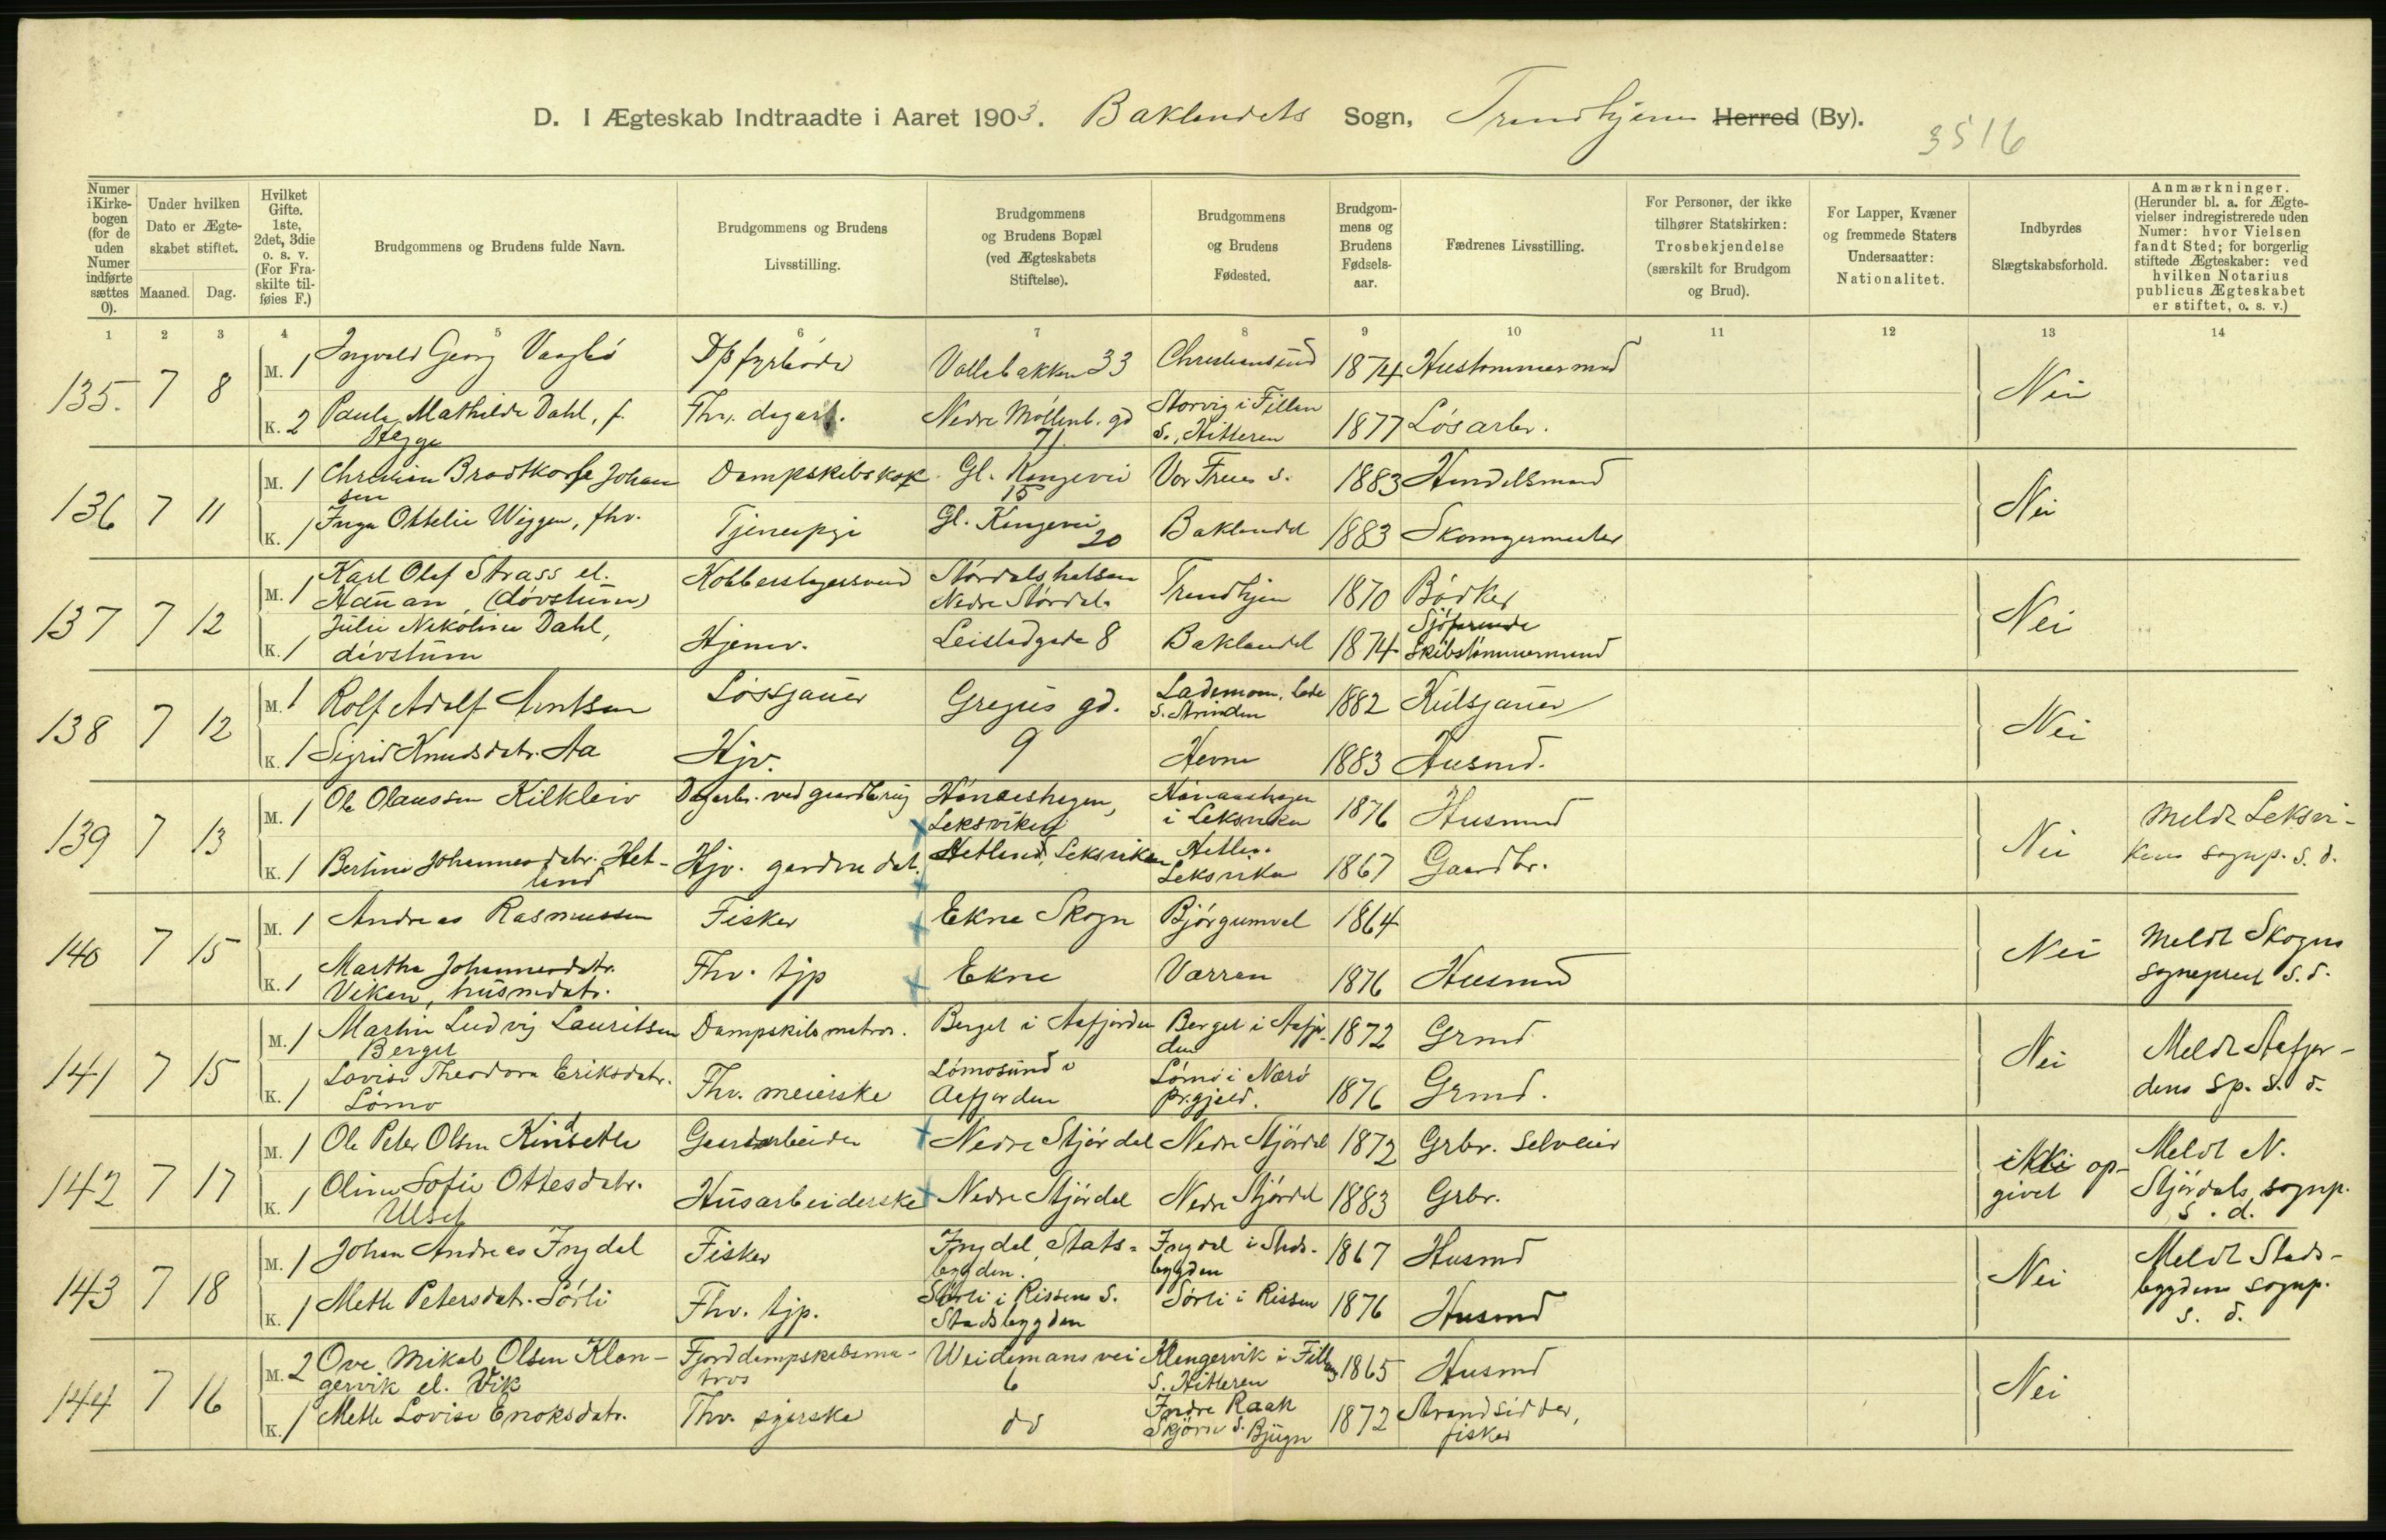 D. I Ægteskab Indtraadte i Aaret 1903. Baklandets Sogn, Trondhjem Herred (By).
3516
Numer i Kirkebogen (for de uden Numer indførte sættes 0).
Under hvilken Dato er Ægteskabet stiftet.
Maaned. Dag.
Hvilket Gifte. 1ste, 2det, 3die o. s. v. (For Fraskilte tilføies F.)
Brudgommens og Brudens fulde Navn.
Brudgommens og Brudens Livsstilling.
Brudgommens og Brudens Bopæl (ved Ægteskabets Stiftelse).
Brudgommens og Brudens Fødested.
Brudgommens og Brudens Fødselsaar.
Fædrenes Livsstilling.
For Personer, der ikke tilhører Statskirken: Trosbekjendelse (særskilt for Brudgom og Brud).
For Lapper, Kvæner og fremmede Staters Undersaatter: Nationalitet.
Indbyrdes Slægtskabsforhold.
Anmærkninger. (Herunder bl. a. for Ægtevielser indregistrerede uden Numer: hvor Vielsen fandt Sted; for borgerlig stiftede Ægteskaber: ved hvilken Notarius publicus Ægteskabet er stiftet, o. s. v.)
1 2 3 4 5 6 7 8 9 10 11 12 13 14
135. 7 8 M. 1 Ingvald Georg Vaagbö Dpfyrböder Vollabakken 33 Christiansund 1874 Hustømmermnd Nei
K. 2 Paula Mathilde Dahl, f. Hegge Fhv. dagarb. Nedre Möllenb. gd 71 Storvig i Fillan S., Hitteren 1877 Lösarbr.
136 7 11 M. 1 Christian Bradtkorb Johansen Dampskibskok Gl. Kongevei 15 Vor Frues S. 1883 Handelsmand Nei
K. 1 Inga Ottelie Wiggen, fhv. Tjenepige Gl. Kongevei 20 Baklandet 1883 Skomagermester
137 7 12 M. 1 Karl Olaf Strass el. Hauan, (døvstum) Kobberslagersvend Stördalshalsen Nedre Stördal. Trondhjem 1870 Bödker Nei
K. 1 Julie Nikoline Dahl, døvstum Hjemv. Leistadgade 8 Baklandet 1874 Sjöfarende Skibstömmermand
138 7 12 M. 1 Rolf Adolf Arntsen Lossjauer Gregus gd. Lademoen, Lade S. Strinden 1882 Kulsjauer Nei
K. 1 Sigrid Knudsdatr. Aa Hjv. 9 Hevne 1883 Husmd.
139 7 13 M. 1 Ole Olaussen Kilkleiv Dagarb. ved gaardbrug Leksviken i Leksviken 1876 Husmand Nei Meldt Leksvi-
kens sognp. s. d.
K. 1 Bertine Johannesdatr. Hetland Hjv. gardm dat. Hetland, Leksviken Hetl. Leksviken 1867 Gaardbr.
140 7 15 M. 1 Andreas Rasmussen Fisker Ekne Skogn Björgumval 1864 Nei Meldt Skogns
sogneprest s. d.
K. 1 Martha Johannesdatr. Viken, husmdatr. Fhv. tjp Ekne Værran 1876 Husmnd
141 7 15 M. 1 Martin Ludvig Lauritsen Berget Dampskibsmatros. Berget i Aafjorden Berget i Aafjorden 1872 Grmd Nei Meldt Aafjor-
dens sp. s. d.
K. 1 Lovise Theodora Eriksdatr. Lömo Fhv. meierske Lömosund i Aafjorden Lömo i Nærö prgjeld. 1876 Grmd.
142 7 17 M. 1 Ole Peter Olsen Kindsetle Gaardarbeider Nedre Stjördal Nedre Stjördal 1872 Grbr. selveier ikke op-
givet Meldt N.
Stjördals sognp.
s. d.
K. 1 Oline Sofie Ottesdatr. Ulset Husarbeiderske Nedre Stjördal Nedre Stjördal 1883 Grbr.
143 7 18 M. 1 Johan Andreas Ingdal Fisker Ingdal Stats-
bygden. Ingdal i Stads-
bygden 1867 Husmd Nei Meldt Stads-
bygdens sognp.
s. d.
K. 1 Mette Petersdatr. Sörli Fhv. tjp. Sörli i Rissens S. Stadsbygden Sörli i Rissen 1876 Husmd
144 7 16 M. 2 Ove Mikal Olsen Klon-
gervik el. Vik Fjorddampskibsma-
tros Weidemansvei 6 Klongervik i Fillans S. Hitteren 1865 Husmd Nei
K. 1 Mette Lovise Enoksdatr. Fhv. syerske do Indre Raak Skjörn S. Bjugn 1872 Strandsidder, fisker